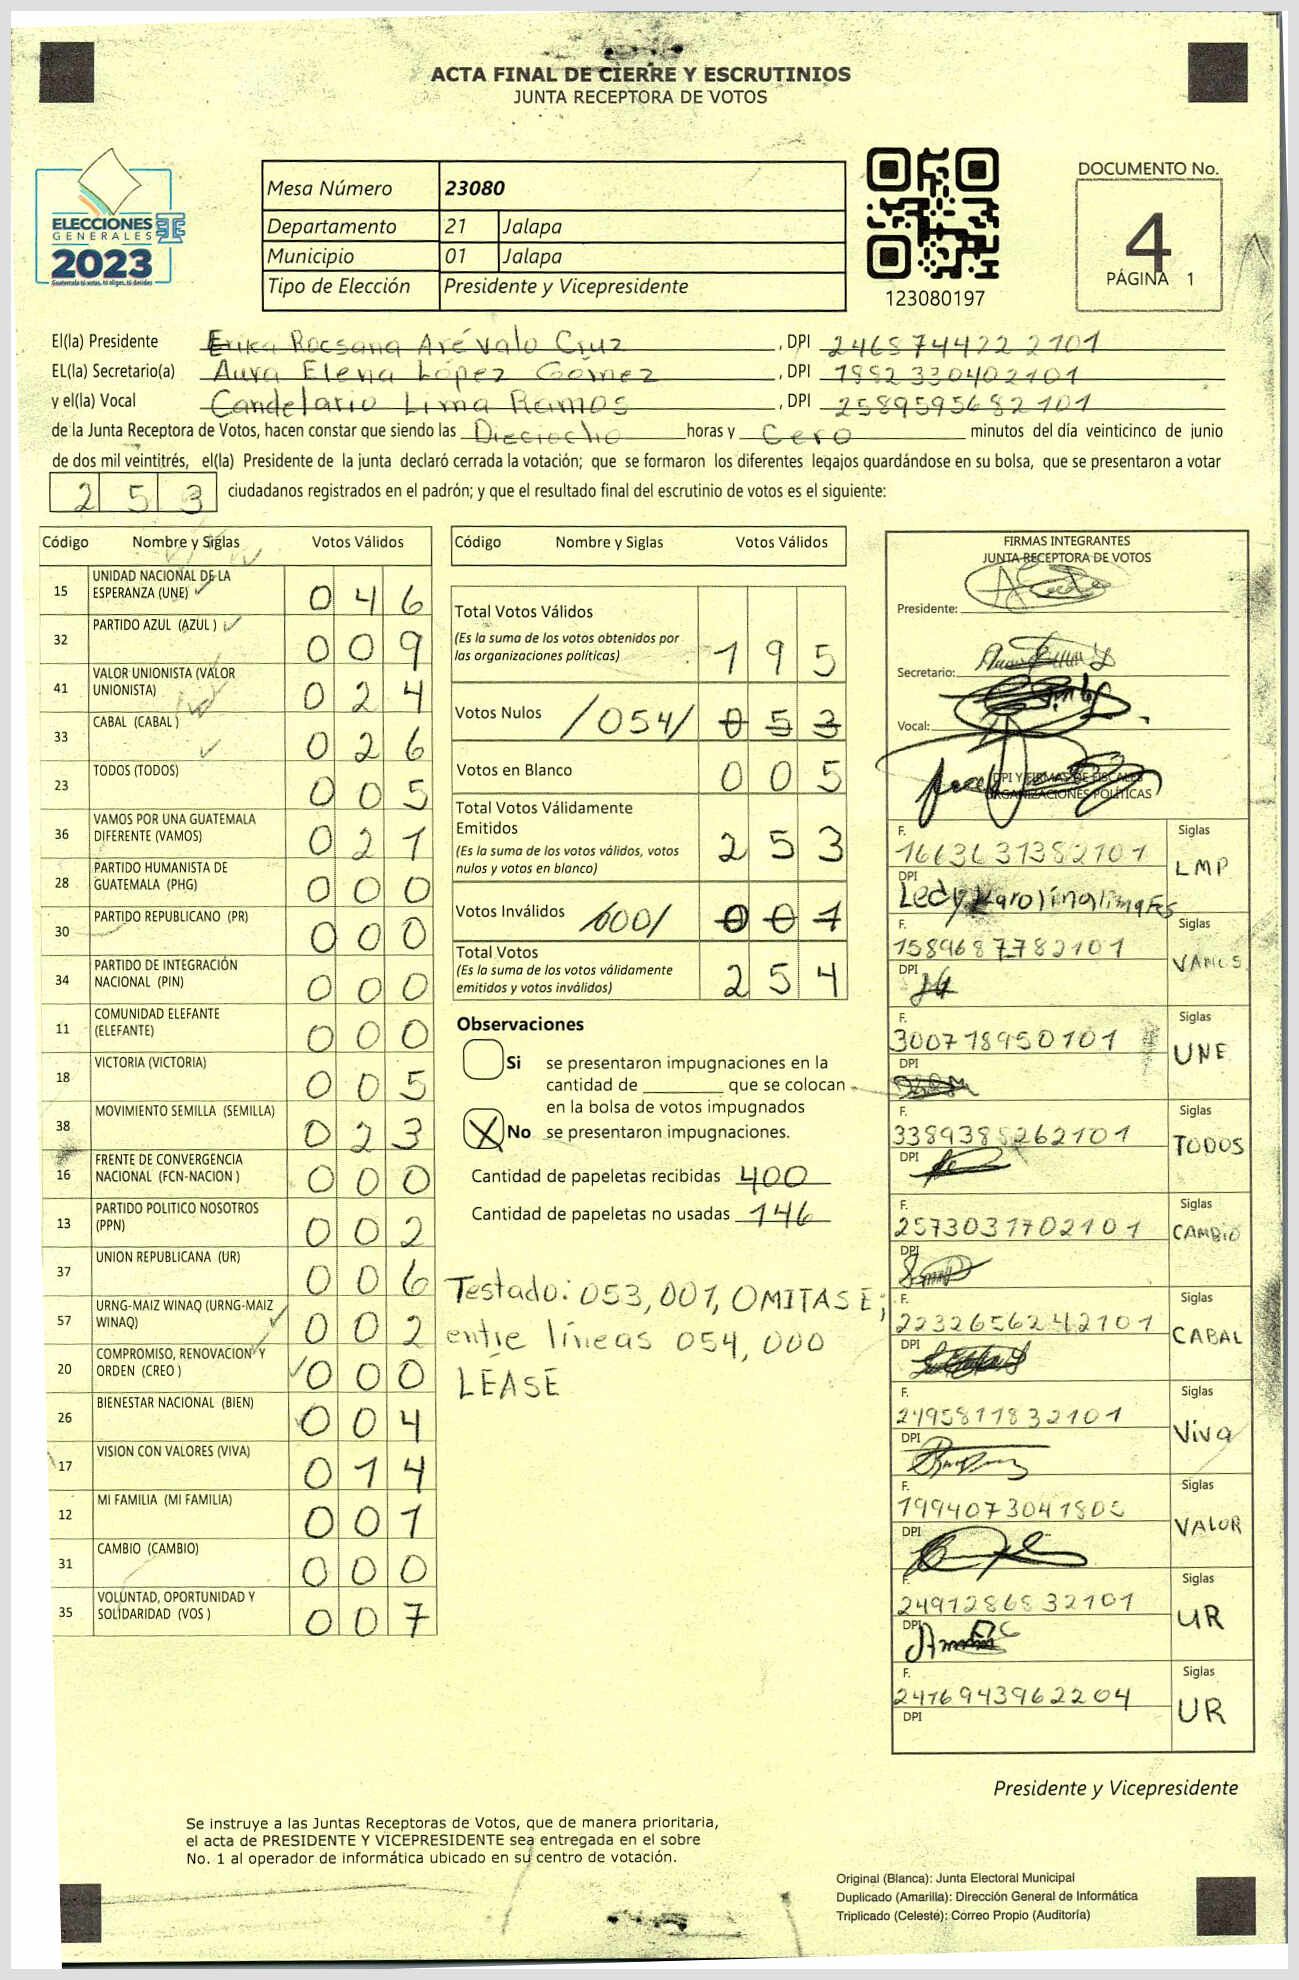 ACTA FINAL DE CIERRE Y ESCRUTINIOS
JUNTA RECEPTORA DE VOTOS
ELECCIONES
GENERALES
2023
Guatemala tú votas, tú eliges, tú decides
Mesa Número 23080
Departamento 21 Jalapa
Municipio 01 Jalapa
Tipo de Elección Presidente y Vicepresidente
123080197
DOCUMENTO No.
4
PÁGINA 1
El(la) Presidente Erika Rocsana Arévalo Cruz, DPI 2468744222101
EL(la) Secretario(a) Aura Elena López Gómez, DPI 1882330402101
y el(la) Vocal Candelario Lima Ramos, DPI 2589595682101
de la Junta Receptora de Votos, hacen constar que siendo las Dieciocho horas y Cero minutos del día veinticinco de junio
de dos mil veintitrés, el(la) Presidente de la junta declaró cerrada la votación; que se formaron los diferentes legajos guardándose en su bolsa, que se presentaron a votar
253 ciudadanos registrados en el padrón; y que el resultado final del escrutinio de votos es el siguiente:
Código Nombre y Siglas Votos Válidos
15 UNIDAD NACIONAL DE LA ESPERANZA (UNE) 046
32 PARTIDO AZUL (AZUL ) 009
41 VALOR UNIONISTA (VALOR UNIONISTA) 024
33 CABAL (CABAL ) 026
23 TODOS (TODOS) 005
36 VAMOS POR UNA GUATEMALA DIFERENTE (VAMOS) 021
28 PARTIDO HUMANISTA DE GUATEMALA (PHG) 000
30 PARTIDO REPUBLICANO (PR) 000
34 PARTIDO DE INTEGRACIÓN NACIONAL (PIN) 000
11 COMUNIDAD ELEFANTE (ELEFANTE) 000
18 VICTORIA (VICTORIA) 005
38 MOVIMIENTO SEMILLA (SEMILLA) 023
16 FRENTE DE CONVERGENCIA NACIONAL (FCN-NACION ) 000
13 PARTIDO POLITICO NOSOTROS (PPN) 002
37 UNION REPUBLICANA (UR) 006
57 URNG-MAIZ WINAQ (URNG-MAIZ WINAQ) 002
20 COMPROMISO, RENOVACION Y ORDEN (CREO ) 000
26 BIENESTAR NACIONAL (BIEN) 004
17 VISION CON VALORES (VIVA) 014
12 MI FAMILIA (MI FAMILIA) 001
31 CAMBIO (CAMBIO) 000
35 VOLUNTAD, OPORTUNIDAD Y SOLIDARIDAD (VOS ) 007
Código Nombre y Siglas Votos Válidos
Total Votos Válidos
(Es la suma de los votos obtenidos por las organizaciones políticas) 195
Votos Nulos /054/ 053
Votos en Blanco 005
Total Votos Válidamente Emitidos
(Es la suma de los votos válidos, votos nulos y votos en blanco) 253
Votos Inválidos /000/ 001
Total Votos
(Es la suma de los votos válidamente emitidos y votos inválidos) 254
Observaciones
Si se presentaron impugnaciones en la
cantidad de ________ que se colocan
en la bolsa de votos impugnados
X No se presentaron impugnaciones.
Cantidad de papeletas recibidas 400
Cantidad de papeletas no usadas 146
Testado: 053, 001, OMITASE;
entre líneas 054, 000
LEASE
FIRMAS INTEGRANTES
JUNTA RECEPTORA DE VOTOS
Presidente:
Secretario:
Vocal:
DPI Y FIRMAS DE FISCALES
ORGANIZACIONES POLÍTICAS
F. Siglas
1663631382101 LMP
DPI
Ledy Karolina
F. Siglas
1589687782101 VAMOS
DPI
F. Siglas
300718950101 UNE
DPI
F. Siglas
3389385262101 TODOS
DPI
F. Siglas
2573031702101 CAMBIO
DPI
F. Siglas
2232656242101 CABAL
DPI
F. Siglas
2495811832101 Viva
DPI
F. Siglas
1994073041805 VALOR
DPI
F. Siglas
2491286832101 UR
DPI
F. Siglas
2476943962204 UR
DPI
Presidente y Vicepresidente
Se instruye a las Juntas Receptoras de Votos, que de manera prioritaria,
el acta de PRESIDENTE Y VICEPRESIDENTE sea entregada en el sobre
No. 1 al operador de informática ubicado en su centro de votación.
Original (Blanca): Junta Electoral Municipal
Duplicado (Amarilla): Dirección General de Informática
Triplicado (Celeste): Correo Propio (Auditoría)